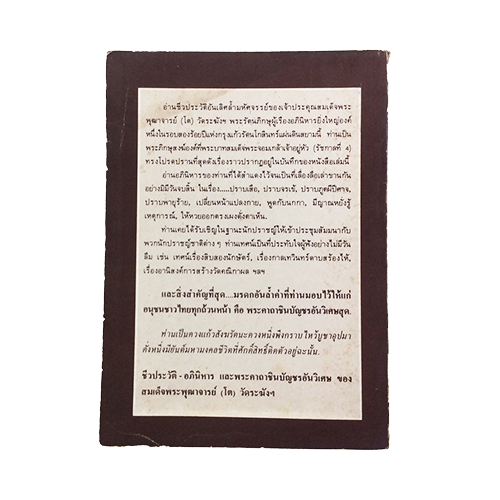 อ่านชีวประวัติอันเลิศล้ำมหัศจรรย์ของเจ้าประคุณสมเด็จพระ
พุฒาจารย์ (โต) วัดระฆังฯ พระรัตนภิกษุผู้เรืองอภินิหารยิ่งใหญ่องค์
หนึ่งในรอบสองร้อยปีแห่งกรุงแก้วรัตนโกสินทร์แผ่นดินสยามนี้ ท่านเป็น
พระภิกษุสงฆ์องค์ที่พระบาทสมเด็จพระจอมเกล้าเจ้าอยู่หัว (รัชกาลที่ 4)
ทรงโปรดปรานที่สุดดังเรื่องราวปรากฏอยู่ในบันทึกของหนังสือเล่มนี้
อ่านอภินิหารของท่านที่ได้สำแดงไว้จนเป็นที่เลื่องลือเล่าขานกัน
อย่างมิมีวันจบสิ้น ในเรื่อง.....ปราบเสือ, ปราบจรเข้, ปราบภูตผีปีศาจ,
ปราบพายุร้าย, เปลี่ยนหน้าแปลงกาย, พูดกับนกกา, มีญาณหยั่งรู้
เหตุการณ์, ให้หวยออกตรงเผงดั่งตาเห็น.
ท่านเคยได้รับเชิญในฐานะนักปราชญ์ให้เข้าประชุมสัมมนากับ
พวกนักปราชญ์ชาติต่าง ๆ ท่านเทศน์เป็นที่ประทับใจผู้ฟังอย่างไม่มีวัน
ลืม เช่น เทศน์เรื่องสิบสองนักษัตร์, เรื่องกาลเทวินทร์ดาบสร้องไห้,
เรื่องอานิสงค์การสร้างวัดคณิกาผล ฯลฯ
และสิ่งสำคัญที่สุด....มรดกอันล้ำค่าที่ท่านมอบไว้ให้แก่
อนุชนชาวไทยทุกถ้วนหน้า คือ พระคาถาชินบัญชรอันวิเศษสุด.
ท่านเป็นดวงแก้วสังฆรัตนะดวงหนึ่งพึงกราบไหว้บูชาอุปมา
ดั่งหนึ่งมียันต์มหามงคลชีวิตที่ศักดิ์สิทธิ์ติดตัวอยู่ฉะนั้น.
ชีวประวัติ - อภินิหาร และพระคาถาชินบัญชรอันวิเศษ ของ
สมเด็จพระพุฒาจารย์ (โต) วัดระฆังฯ